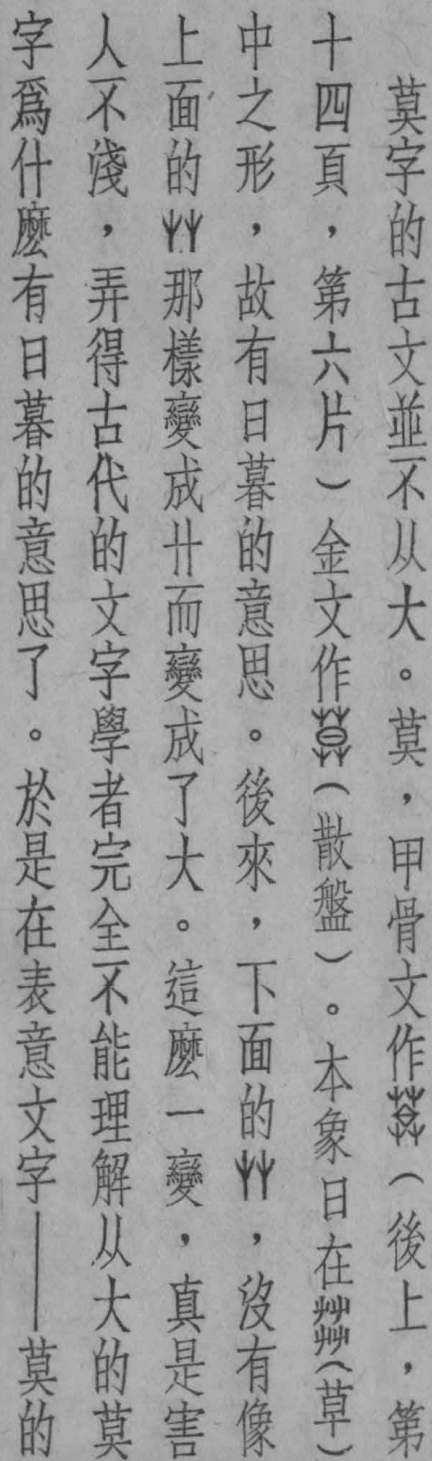 莫字的古文並不从大。莫，甲骨文作（後上，第
十四頁，第六片）金文作（散盤）。本象日在茻（草）
中之形，故有日暮的意思。後來，下面的艸，沒有像
上面的艸那樣變成卄而變成了大。這麼一變，真是害
人不淺，弄得古代的文字學者完全不能理解从大的莫
字爲什麼有日暮的意思了。於是在表意文字——莫的